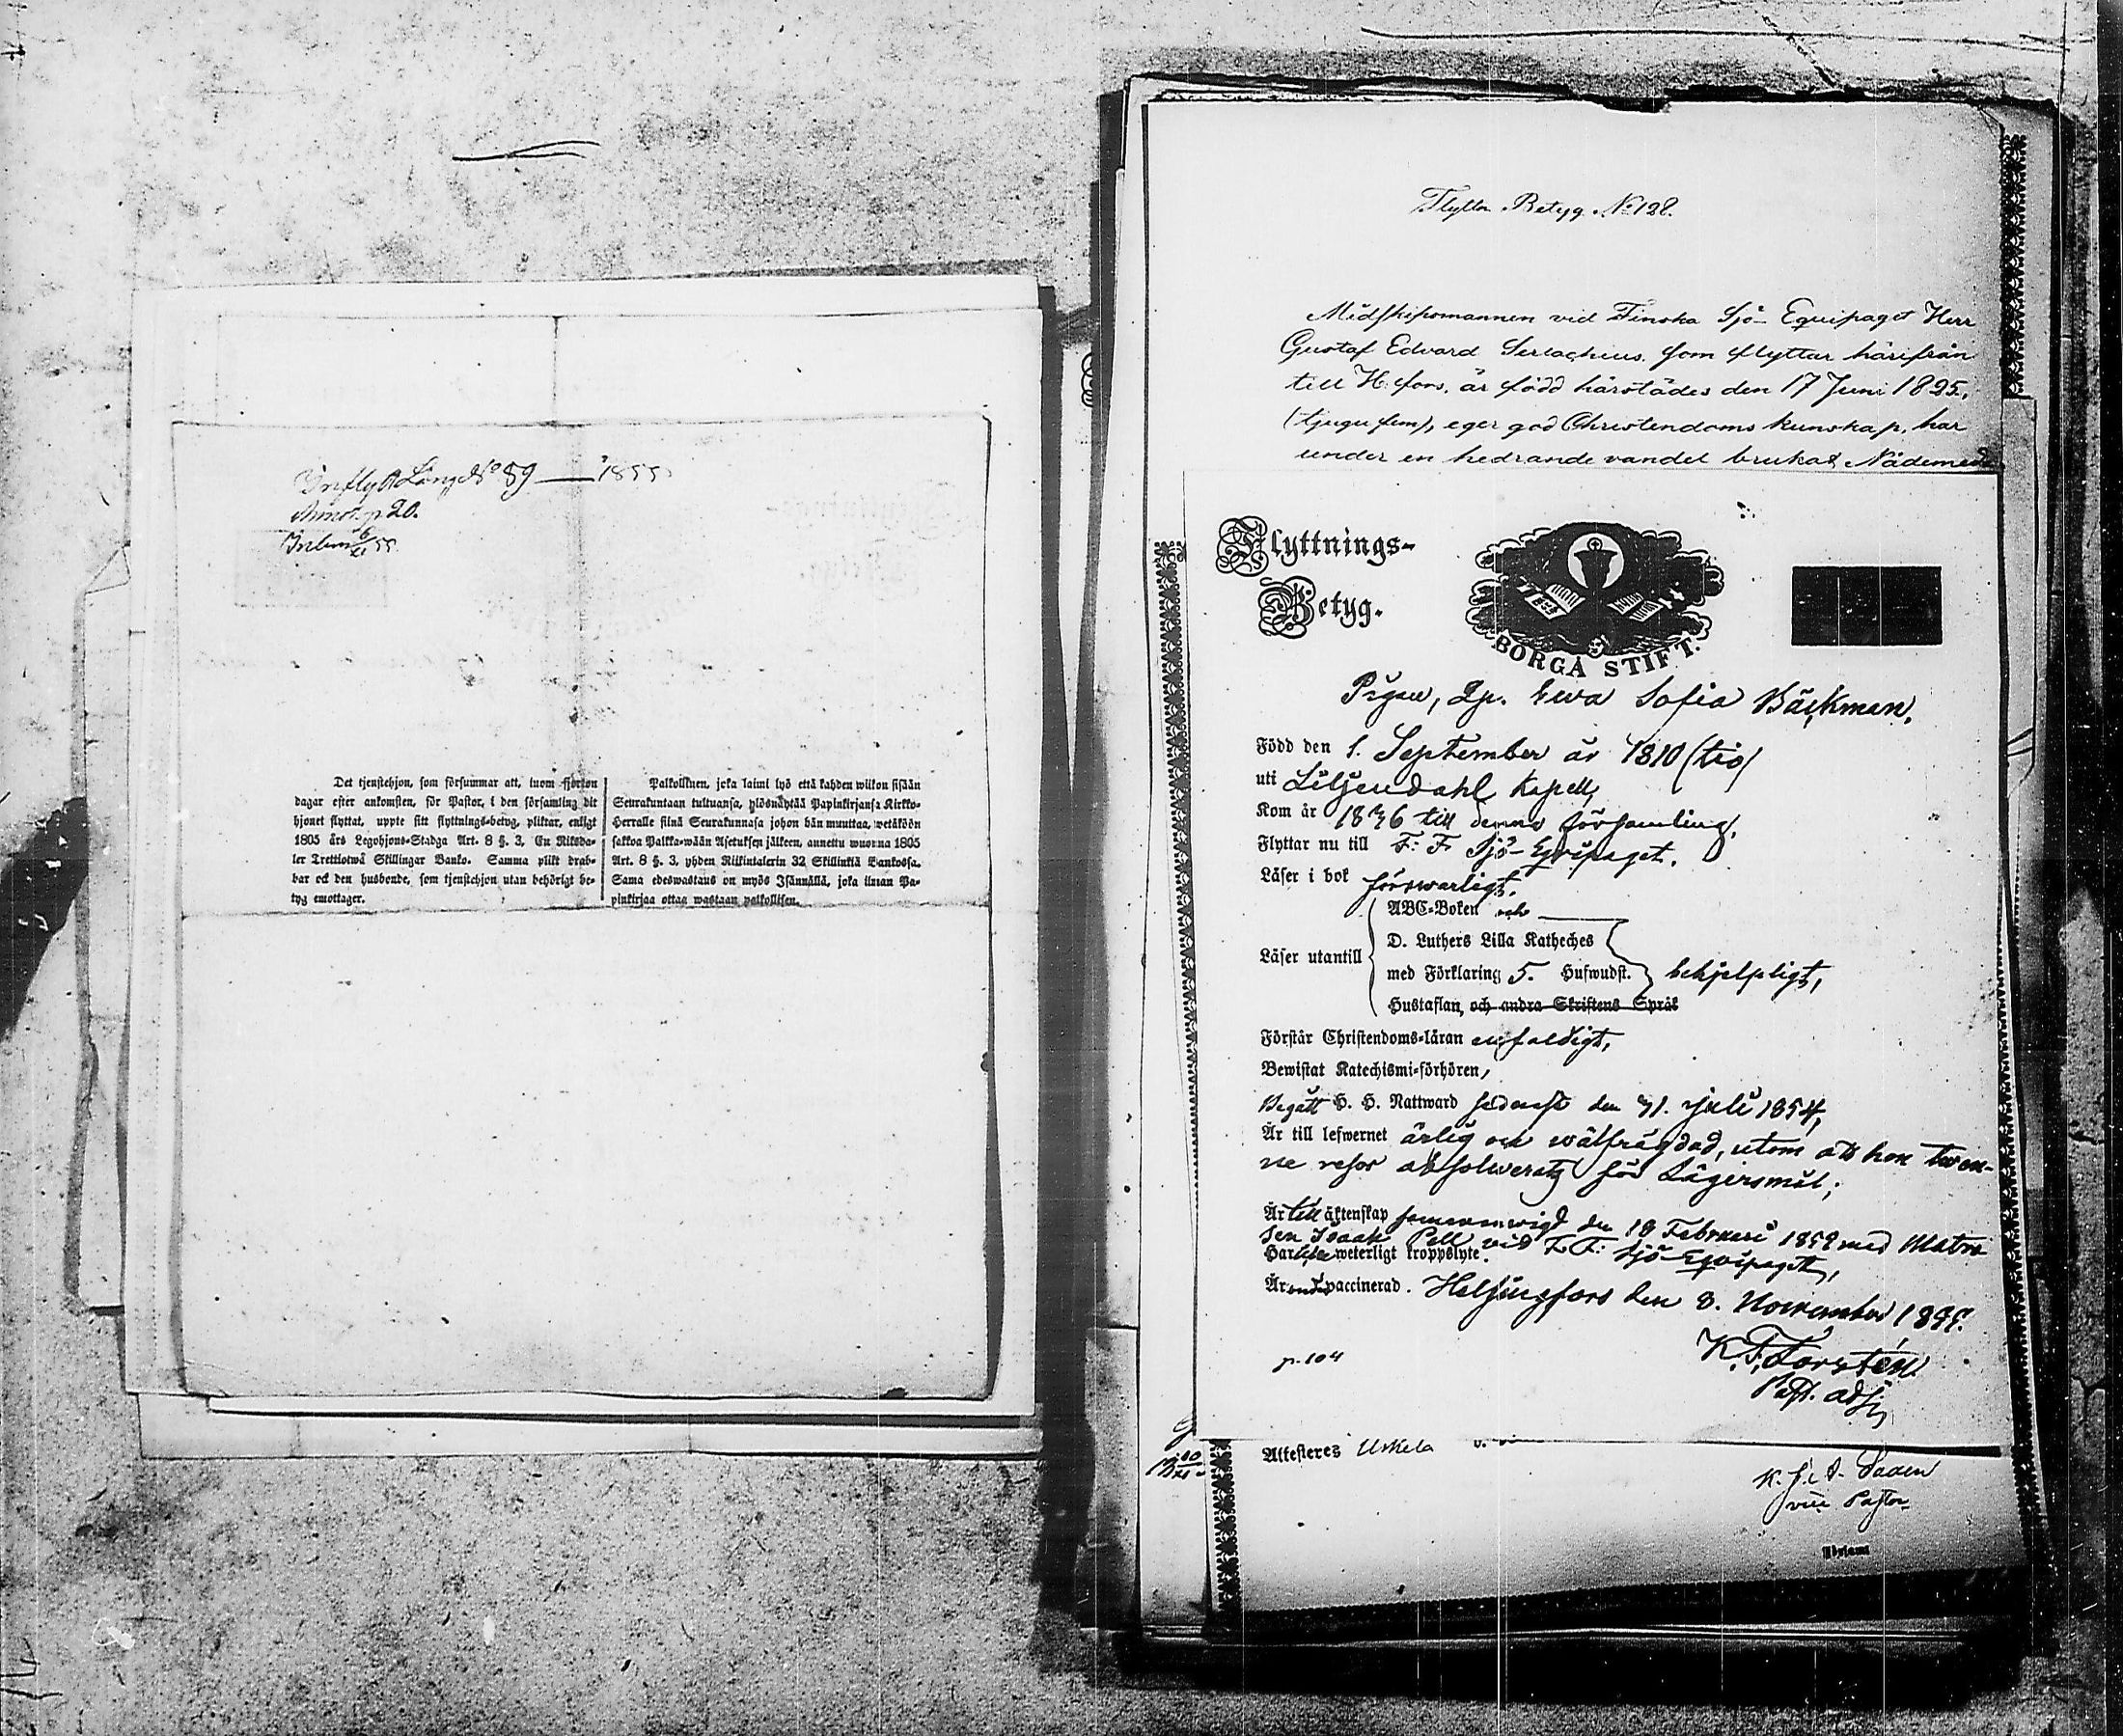 Inflyttn Längd No 89 — 1855
p. 20.
Det tjenstehjon, som försummar att, inom fjorton
dagar efter ankomsten, för Pastor, i den församling dit
hjonet flyttat, uppte sitt flyttnings-betyg, pliktar, enligt
1805 års Legohjons-Stadga Art. 8 §. 3, En Riksda-
ler Trettiotwå Skillingar Banko. Samma plikt drab-
bar ock den husbonde, som tjenstehjon utan behörigt be-
tyg emottager.
Palkollinen, joka laimi lyö että kahden wiikon sisään
Seurakuntaan tultuansa, ylösnäyttää Papinkirjansa Kirkko-
Herralle siinä Seurakunnasa johon hän muuttaa, wetäköön
sakkoa Palkka-wään Asetuksen jälkeen, annettu wuonna 1805
Art. 8 §. 3, yhden Riikintalerin 32 Skillinkiä Bankossa.
Sama edeswastaus on myös Isännällä, joka ilman Pa-
pinkirjaa ottaa wastaan palkollisen.
Flytto Betyg. No 128.
Midskipsmannen vid Finska Sjö-Equipaget Herr
Gustaf Edvard Serlachius, som flyttar härifrån
till H:fors, är född härstädes den 17 Juni 1825,
(tjugu fem), eger god Christendoms kunskap, har
under en hedrande vandel brukat Nådemed
Flyttnings-
Betyg.
BORGÅ STIFT.
Pigan, Ewa Sofia Bäckman,
Född den 1. September år 1810 (tio)
uti Liljendahl Kapell,
Kom år 1836 till denna församling.
Flyttar nu till F. F. Sjö-Eqvipaget.
Läser i bok försvarligt.
ABC-Boken och
D. Luthers Lilla Katheches
Läser utantill
med Förklaring 5. Hufwudst. behjelpligt,
Hustaflan, och andra Skriftens Språk
Förstår Christendoms-läran enfaldigt,
Bewistat Katechismi-förhören,
Begått H. H. Nattward sednast den 31. Juli 1854,
Är till lefwernet ärlig och wälfrägdad, utom att hon twen-
ne resor absolwerats för Lägersmål;
Är till äktenskap sammanwigd den 18 Februari med Matro-
sen Isaak Pell vid F. F. Sjö-Eqvipaget,
Har weterligt kroppslyte.
Är vaccinerad. Helsingfors den 8. November 1855.
K. F. Forstén
Past. adj.
p. 104
Attesteres Uskela
vice Pastor